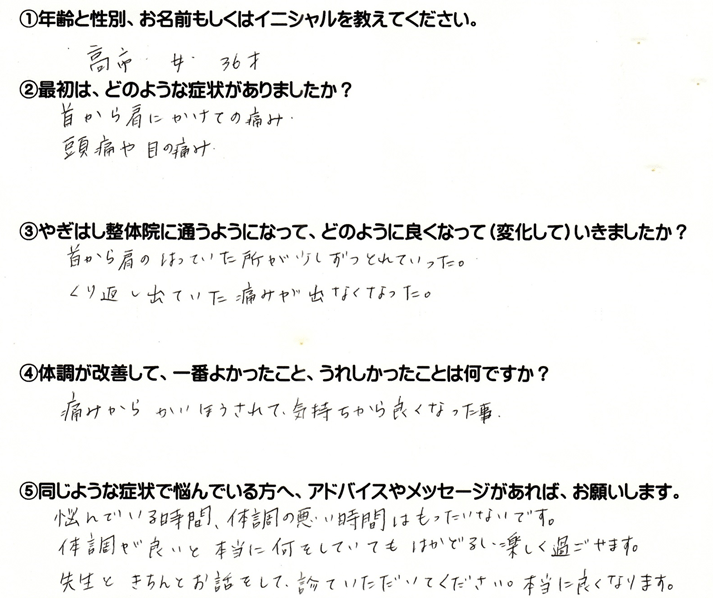 ①年齢と性別、お名前もしくはイニシャルを教えてください。
高市 女 36才
②最初は、どのような症状がありましたか？
首から肩にかけての痛み.
頭痛や目の痛み.
③やぎはし整体院に通うようになって、どのように良くなって（変化して）いきましたか？
首から肩のはっていた所が少しずつとれていった。
くり返し出ていた痛みが出なくなった。
④体調が改善して、一番よかったこと、うれしかったことは何ですか？
痛みからかいほうされて、気持ちから良くなった事.
⑤同じような症状で悩んでいる方へ、アドバイスやメッセージがあれば、お願いします。
悩んでいる時間、体調の悪い時間はもったいないです。
体調が良いと本当に何をしていてもはかどるし、楽しく過ごせます。
先生ときちんとお話をして、診ていただいてください。本当に良くなります。